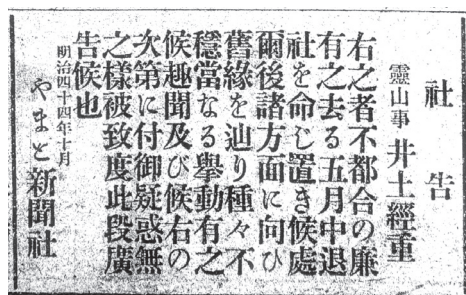 社告
靈山事 井土經重
右之者不都合の廉
有之去る五月中退
社を命じ置き候處
爾後諸方面に向ひ
舊緣を辿り種々不
穩當なる擧動有之
候趣聞及び候右の
次第に付御疑惑無
之樣被致度此段廣
告候也
明治四十四年十月
やまと新聞社